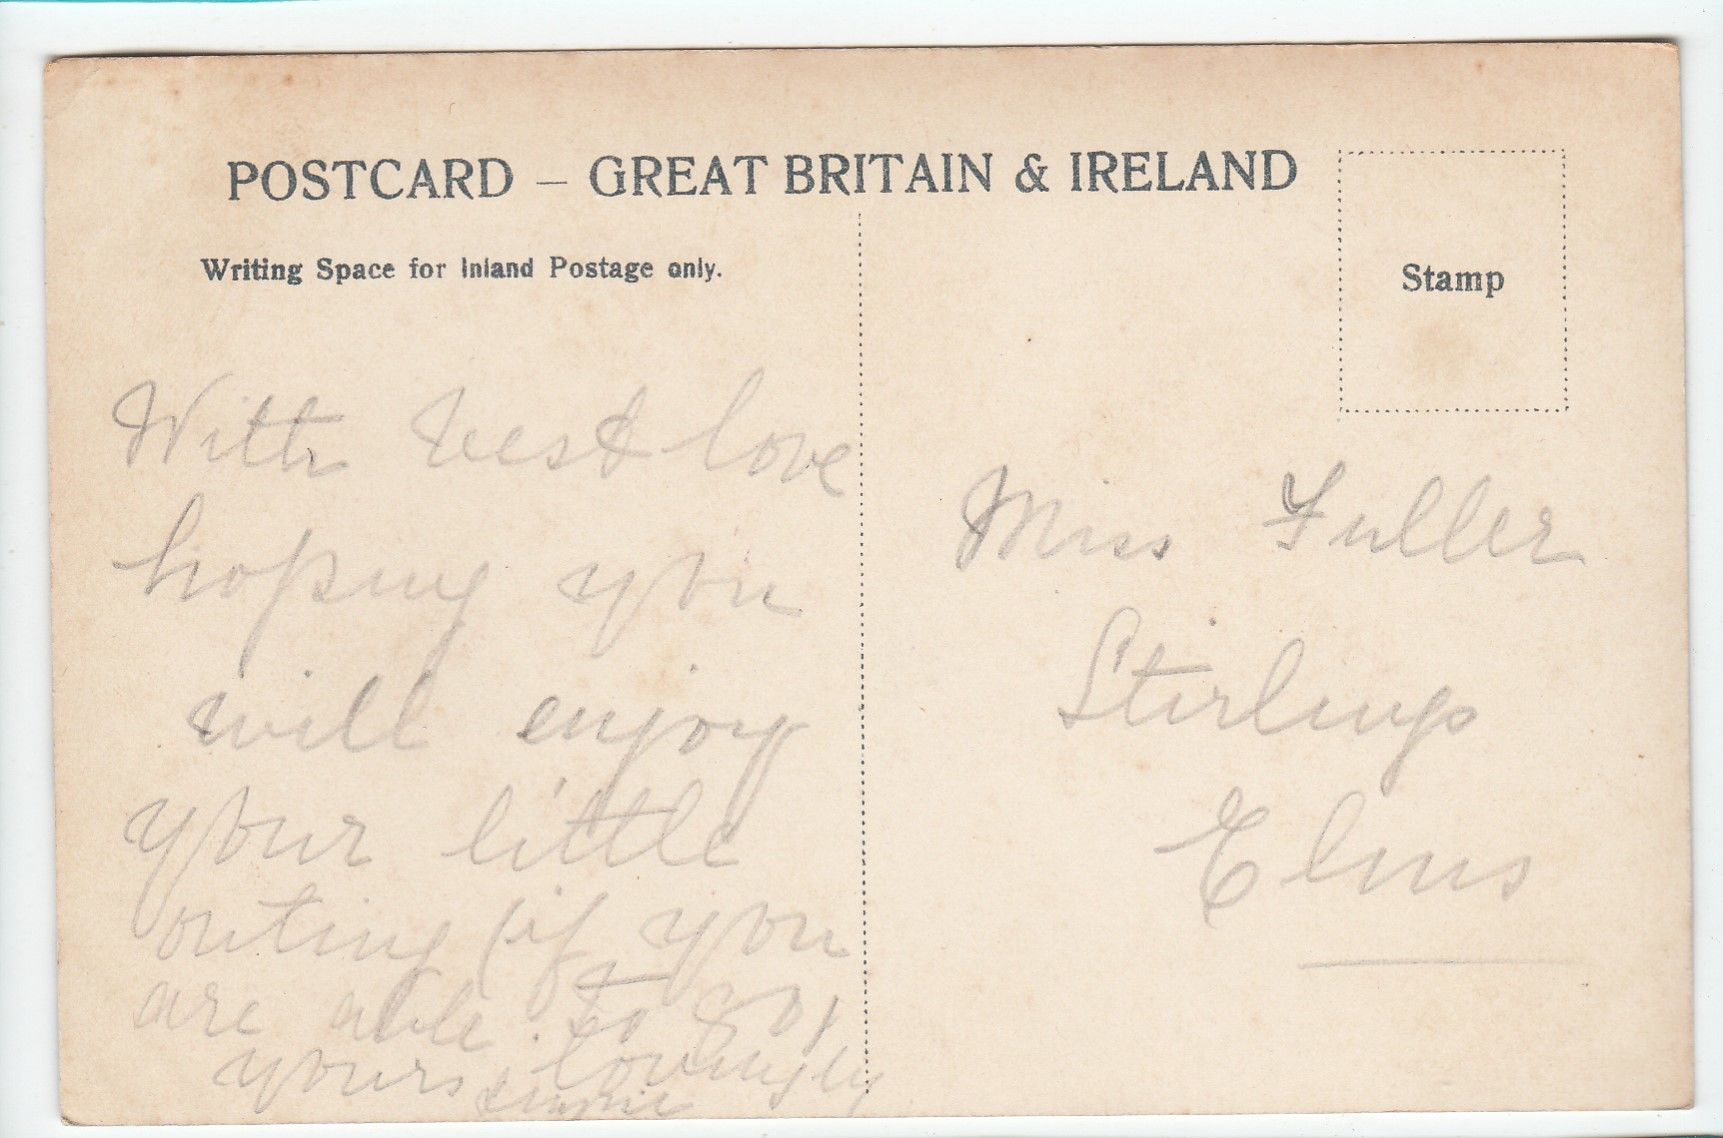 POSTCARD – GREAT BRITAIN & IRELAND
Writing Space for Inland Postage only.
Stamp
With best love
hoping you
will enjoy
your little
outing (if you
are able to go)
yours lovingly
Miss Fuller
Stirlings
Elms